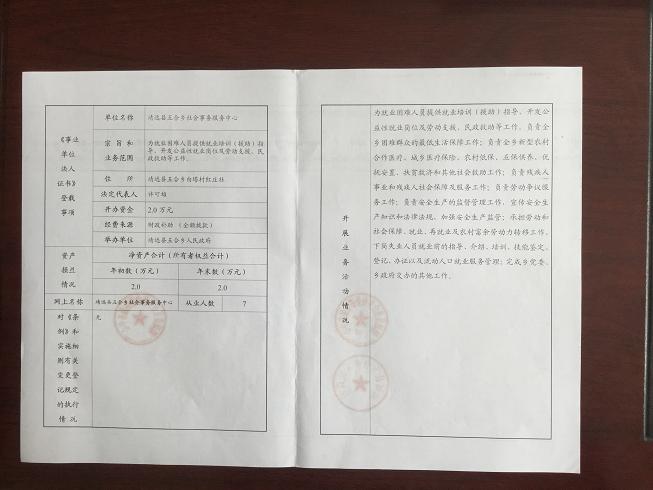 《事业
单位
法人
证书》
登载
事项
单位名称
靖远县五合乡社会事务服务中心
宗旨和
业务范围
为就业困难人员提供就业培训（援助）指
导、开发公益性就业岗位及劳动支援、民
政救助等工作。
住所
靖远县五合乡白塔村红丘社
法定代表人
开办资金
2.0万元
经费来源
财政补助（全额拨款）
举办单位
靖远县五合乡人民政府
资产
损益
情况
净资产合计（所有者权益合计）
年初数（万元）
年末数（万元）
2.0
2.0
网上名称
靖远县五合乡社会事务服务中心
从业人数
7
对《条
例》和
实施细
则有关
变更登
记规定
的执行
情况
无
开展业务活动情况
为就业困难人员提供就业培训（援助）指导、开发公
益性就业岗位及劳动支援、民政救助等工作。负责全
乡困难群众的最低生活保障工作；负责全乡新型农村
合作医疗、城乡医疗保险、农村低保、五保供养、优
抚安置、扶贫救济和其他社会救助工作；负责残疾人
事业和残疾人社会保障及服务工作；负责劳动争议服
务工作；负责安全生产的监督管理工作、宣传安全生
产知识和法律法规、加强安全生产监管；承担劳动和
社会保障、就业、再就业及农村富余劳动力转移工作、
下岗失业人员就业前的指导、介绍、培训、技能鉴定、
登记、办证以及流动人口就业服务管理；完成乡党委、
乡政府交办的其他工作。